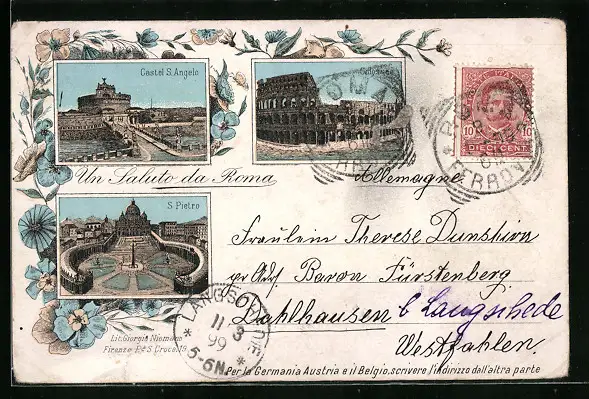 Castel S. Angelo
Colosseo
ROMA
10 DIECI CENT. 10
ROMA
FERROVIA
Un Saluto da Roma
Allemagne
S. Pietro
Fräulein Therese
pr Adr Baron Fürstenberg
Dahlhausen b Langschede
Westfahlen.
LANGSCHEDE
11 3
99
5-6N.
Lit. Giorgio Niemann
Firenze P. S. Croce 19
Per la Germania Austria e il Belgio, scrivere l'indirizzo dall'altra parte